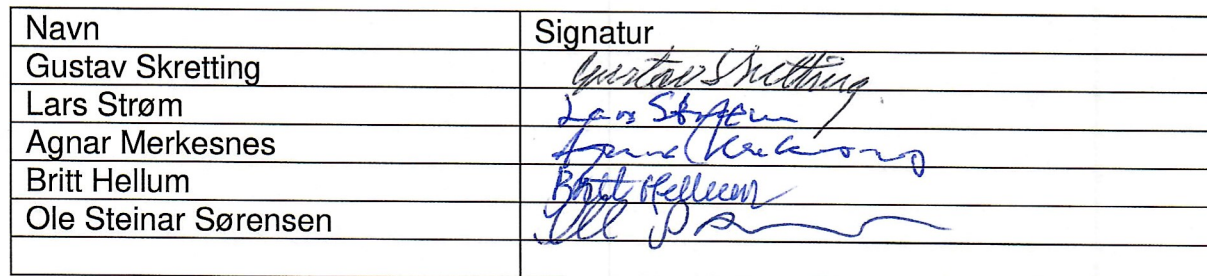 Navn Signatur
Gustav Skretting Gustav Skretting
Lars Strøm Lars Strøm
Agnar Merkesnes
Britt Hellum Britt Hellum
Ole Steinar Sørensen